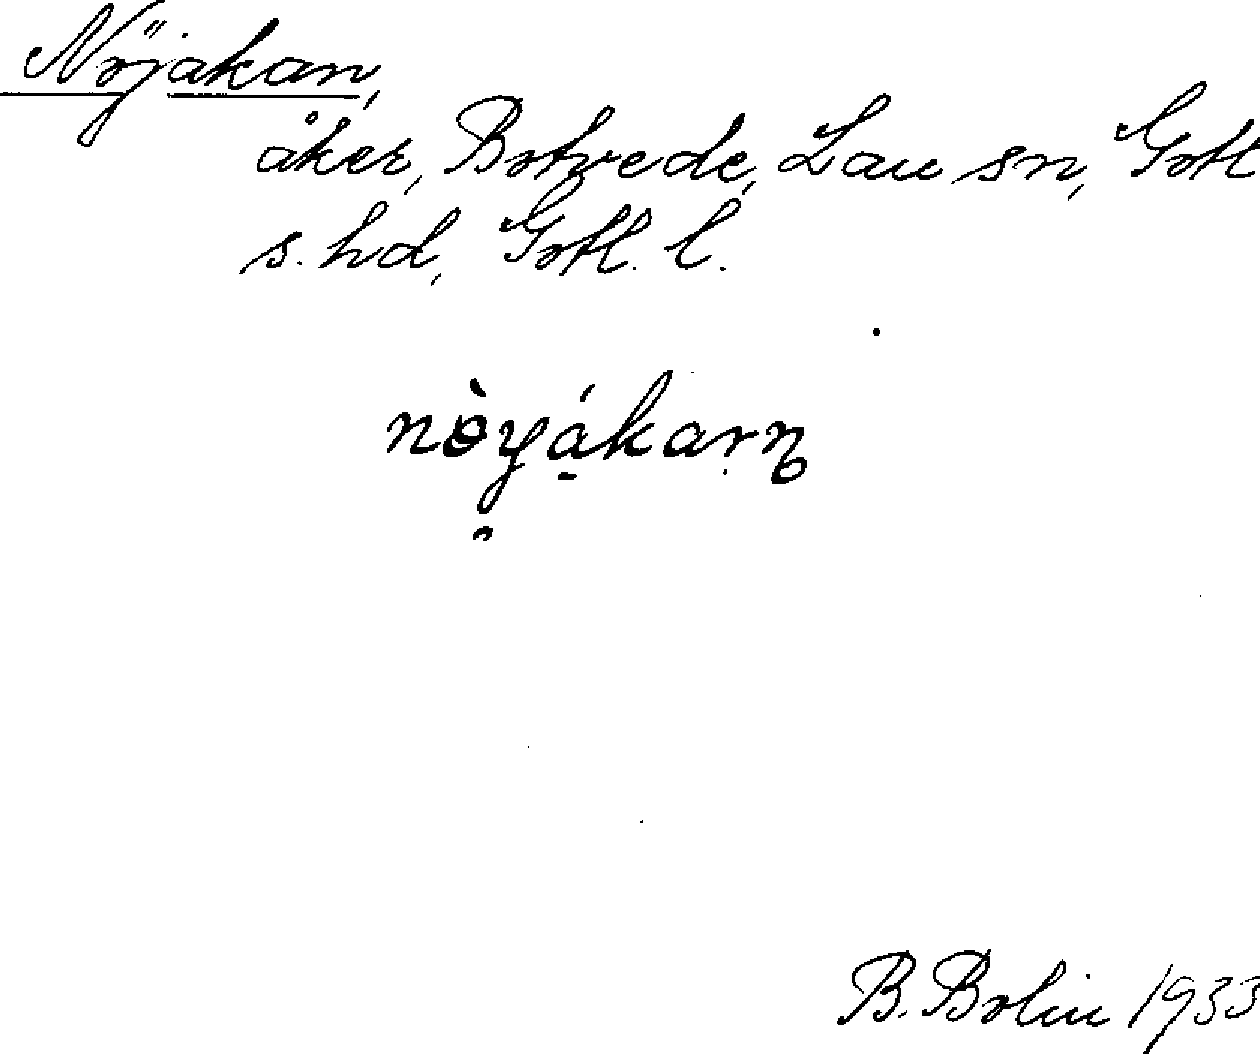 Nöjakan,
åker, Botvede, Lau sn, Gotl
s. hd, Gotl. l.
nòyákarn
B. Bolin 1933